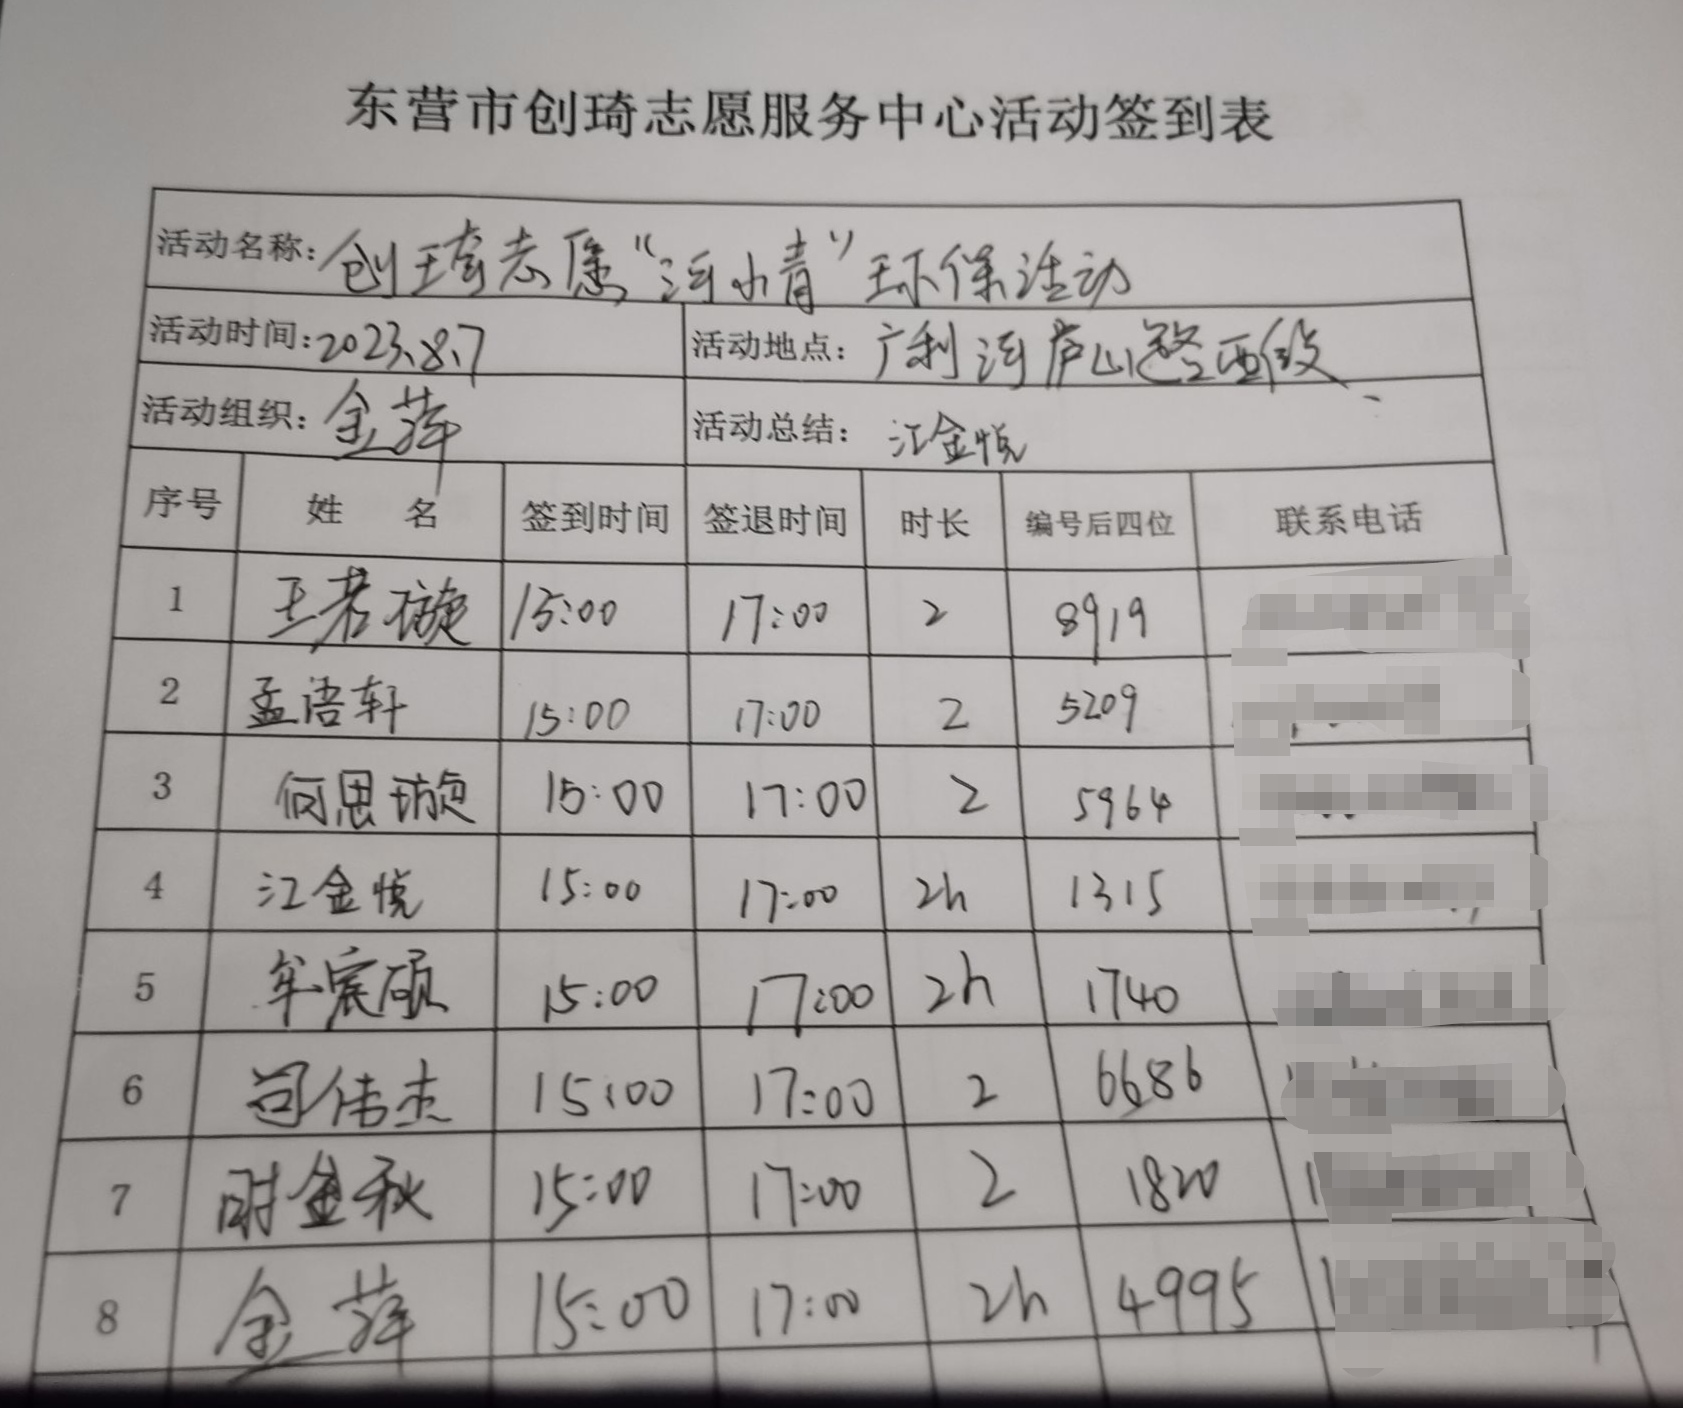 东营市创琦志愿服务中心活动签到表
活动名称：创琦志愿“河小青”环保活动
活动时间：2023.8.7 活动地点：广利河庐山路西段
活动组织：金萍 活动总结：江金悦
序号 姓名 签到时间 签退时间 时长 编号后四位 联系电话
1 王若璇 15:00 17:00 2 8919
2 孟语轩 15:00 17:00 2 5209
3 何思璇 15:00 17:00 2 5964
4 江金悦 15:00 17:00 2h 1315
5 牟宸硕 15:00 17:00 2h 1740
6 苟伟杰 15:00 17:00 2 6686
7 时金秋 15:00 17:00 2 1820
8 金萍 15:00 17:00 2h 4995